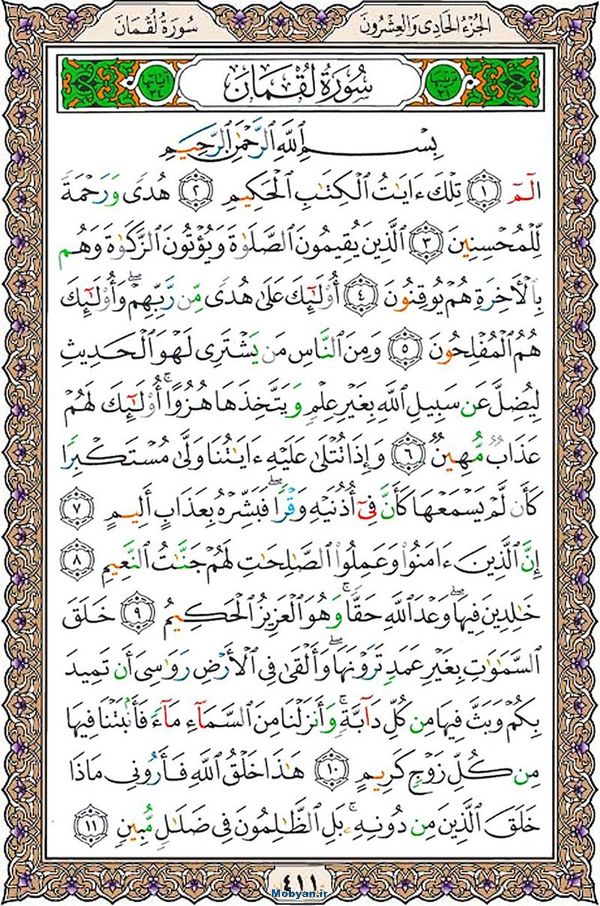 الجُزءُ الحَادِى وَالعِشْرُونَ
سُورَةُ لُقْمَانَ
سُورَةُ لُقْمَانَ
بِسْمِ ٱللَّهِ ٱلرَّحْمَٰنِ ٱلرَّحِيمِ
الٓمٓ ١ تِلْكَ ءَايَٰتُ ٱلْكِتَٰبِ ٱلْحَكِيمِ ٢ هُدًى وَرَحْمَةً
لِّلْمُحْسِنِينَ ٣ ٱلَّذِينَ يُقِيمُونَ ٱلصَّلَوٰةَ وَيُؤْتُونَ ٱلزَّكَوٰةَ وَهُم
بِٱلْأَخِرَةِ هُمْ يُوقِنُونَ ٤ أُو۟لَٰٓئِكَ عَلَىٰ هُدًى مِّن رَّبِّهِمْ ۖ وَأُو۟لَٰٓئِكَ
هُمُ ٱلْمُفْلِحُونَ ٥ وَمِنَ ٱلنَّاسِ مَن يَشْتَرِى لَهْوَ ٱلْحَدِيثِ
لِيُضِلَّ عَن سَبِيلِ ٱللَّهِ بِغَيْرِ عِلْمٍ وَيَتَّخِذَهَا هُزُوًا ۚ أُو۟لَٰٓئِكَ لَهُمْ
عَذَابٌ مُّهِينٌ ٦ وَإِذَا تُتْلَىٰ عَلَيْهِ ءَايَٰتُنَا وَلَّىٰ مُسْتَكْبِرًا
كَأَن لَّمْ يَسْمَعْهَا كَأَنَّ فِىٓ أُذُنَيْهِ وَقْرًا ۖ فَبَشِّرْهُ بِعَذَابٍ أَلِيمٍ ٧
إِنَّ ٱلَّذِينَ ءَامَنُوا۟ وَعَمِلُوا۟ ٱلصَّٰلِحَٰتِ لَهُمْ جَنَّٰتُ ٱلنَّعِيمِ ٨
خَٰلِدِينَ فِيهَا ۖ وَعْدَ ٱللَّهِ حَقًّا ۚ وَهُوَ ٱلْعَزِيزُ ٱلْحَكِيمُ ٩ خَلَقَ
ٱلسَّمَٰوَٰتِ بِغَيْرِ عَمَدٍ تَرَوْنَهَا ۖ وَأَلْقَىٰ فِى ٱلْأَرْضِ رَوَٰسِىَ أَن تَمِيدَ
بِكُمْ وَبَثَّ فِيهَا مِن كُلِّ دَآبَّةٍ ۚ وَأَنزَلْنَا مِنَ ٱلسَّمَآءِ مَآءً فَأَنۢبَتْنَا فِيهَا
مِن كُلِّ زَوْجٍ كَرِيمٍ ١٠ هَٰذَا خَلْقُ ٱللَّهِ فَأَرُونِى مَاذَا
خَلَقَ ٱلَّذِينَ مِن دُونِهِۦ ۚ بَلِ ٱلظَّٰلِمُونَ فِى ضَلَٰلٍ مُّبِينٍ ١١
٤١١
Mobyan.ir